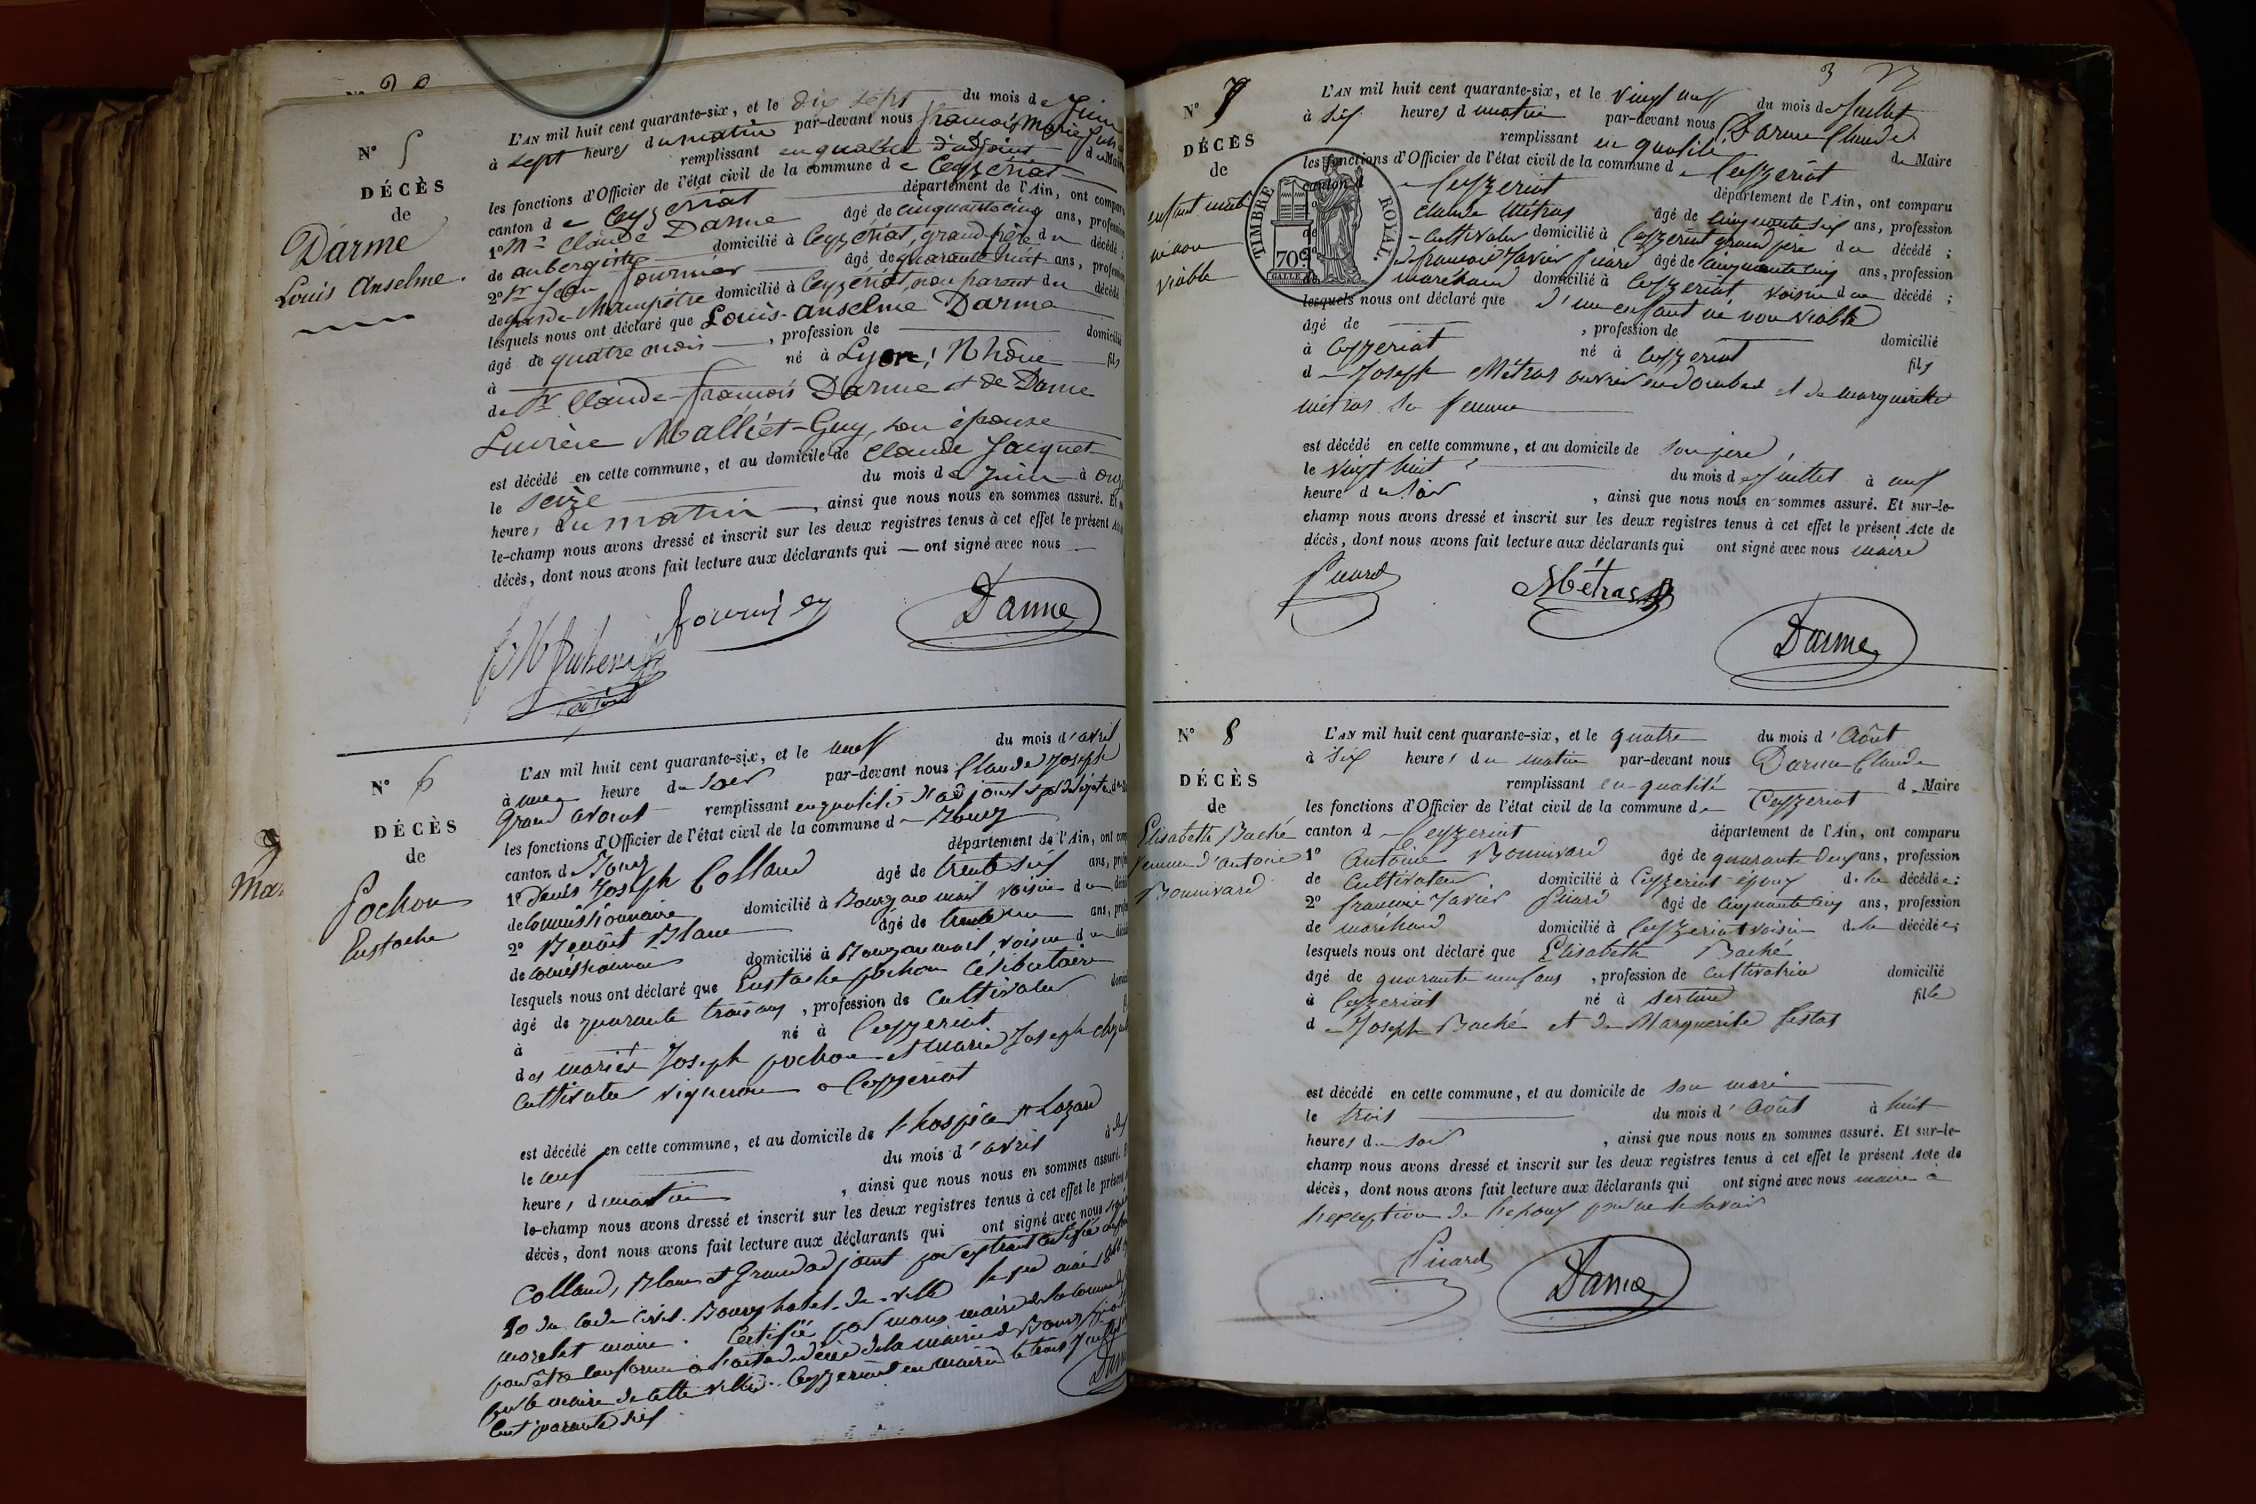 N° 5
DÉCÈS
de
Darme
Louis Anselme.
L'AN mil huit cent quarante-six, et le dix sept du mois de Juin
à sept heures du matin par-devant nous françois Marie
remplissant en qualité d'adjoint du Maire
les fonctions d'Officier de l'état civil de la commune de Ceyzériat
canton de Ceyzériat département de l'Ain, ont comparu
1° Mr Claude Darme âgé de cinquante cinq ans, profession
de aubergiste domicilié à Ceyzériat, grand-père du décédé ;
2° Sr Jean fournier âgé de quarante huit ans, profession
de garde champêtre domicilié à Ceyzériat, non parent du décédé
lesquels nous ont déclaré que Louis-Anselme Darme
âgé de quatre mois, profession de domicilié
à né à Lyon, Rhône fils
de Sr Claude-françois Darme et de Dame
Mallièt-Guy, son épouse
est décédé en cette commune, et au domicile de Claude Jacquet
le seize du mois de Juin à onze
heures du matin, ainsi que nous nous en sommes assuré. Et
le-champ nous avons dressé et inscrit sur les deux registres tenus à cet effet le présent
décès, dont nous avons fait lecture aux déclarants qui ont signé avec nous
fournier
Darme
N° 6
DÉCÈS
de
Pochon
Eustache
L'AN mil huit cent quarante-six, et le neuf du mois d'avril
à une heure du soir par-devant nous Claude Joseph
Grand avocat remplissant en qualité d'adjoint
les fonctions d'Officier de l'état civil de la commune de Bourg
canton de Bourg département de l'Ain, ont
1° Denis Joseph Colland âgé de trente six ans,
de Commissionnaire domicilié à Bourg non parent voisin du
2° Benoît Blanc âgé de trente un ans,
de commissionnaire domicilié à Bourg non parent voisin du
lesquels nous ont déclaré que Eustache pochon Célibataire
âgé de quarante trois ans, profession de Cultivateur
à né à Ceyzeriat
des mariés Joseph pochon et Marie Joseph
Cultivateur vigneron à Ceyzeriat
est décédé en cette commune, et au domicile de l'hospice St Lazare
le neuf du mois d'avril à
heure, du matin, ainsi que nous nous en sommes assuré.
le-champ nous avons dressé et inscrit sur les deux registres tenus à cet effet le présent
décès, dont nous avons fait lecture aux déclarants qui ont signé avec nous
Colland, Blanc et Grand adjoint pour extrait certifié
80 du Code Civil. Bourg hotel-de-ville
maire. Certifié par nous maire de la commune
pour être conforme à l'acte de décès de la mairie de Bourg
par le maire de cette ville. Ceyzeriat en mairie le trois
Cent quarante six
3
N° 7
DÉCÈS
de
enfant
né non
viable
TIMBRE ROYAL.
70c
L'AN mil huit cent quarante-six, et le vingt neuf du mois de Juillet
à six heures du matin par-devant nous Darme Claude
remplissant en qualité de Maire
les fonctions d'Officier de l'état civil de la commune de Ceyzeriat
canton de Ceyzeriat département de l'Ain, ont comparu
Claude Métras âgé de cinquante six ans, profession
de Cultivateur domicilié à Ceyzeriat grand pere du décédé ;
françois Xavier Picard âgé de cinquante cinq ans, profession
de maréchand domicilié à Ceyzeriat voisin du décédé ;
lesquels nous ont déclaré que d'un enfant né non viable
âgé de, profession de domicilié
à Ceyzeriat né à Ceyzeriat fils
de Joseph Métras ouvrier en Dombes et de marguerite
métras sa femme
est décédé en cette commune, et au domicile de son pere
le vingt huit du mois de Juillet à neuf
heure du soir, ainsi que nous nous en sommes assuré. Et sur-le-
champ nous avons dressé et inscrit sur les deux registres tenus à cet effet le présent Acte de
décès, dont nous avons fait lecture aux déclarants qui ont signé avec nous maire
Picard
Métras
Darme
N° 8
DÉCÈS
de
Elisabeth Baché
femme d'antoine
Bonnivard
L'AN mil huit cent quarante-six, et le quatre du mois d'Août
à six heures du matin par-devant nous Darme Claude
remplissant en qualité de Maire
les fonctions d'Officier de l'état civil de la commune de Ceyzeriat
canton de Ceyzeriat département de l'Ain, ont comparu
1° Antoine Bonnivard âgé de quarante deux ans, profession
de Cultivateur domicilié à Ceyzeriat époux de la décédée;
2° françois Xavier Picard âgé de cinquante cinq ans, profession
de maréchand domicilié à Ceyzeriat voisin de la décédée;
lesquels nous ont déclaré que Elisabeth Baché
âgé de quarante neuf ans, profession de Cultivatrice domicilié
à Ceyzeriat né à fille
de Joseph Baché et de Marguerite
est décédé en cette commune, et au domicile de son mari
le trois du mois d'Août à huit
heures du soir, ainsi que nous nous en sommes assuré. Et sur-le-
champ nous avons dressé et inscrit sur les deux registres tenus à cet effet le présent Acte de
décès, dont nous avons fait lecture aux déclarants qui ont signé avec nous maire à
l'exception de l'epoux pour ne le savoir
Picard
Darme